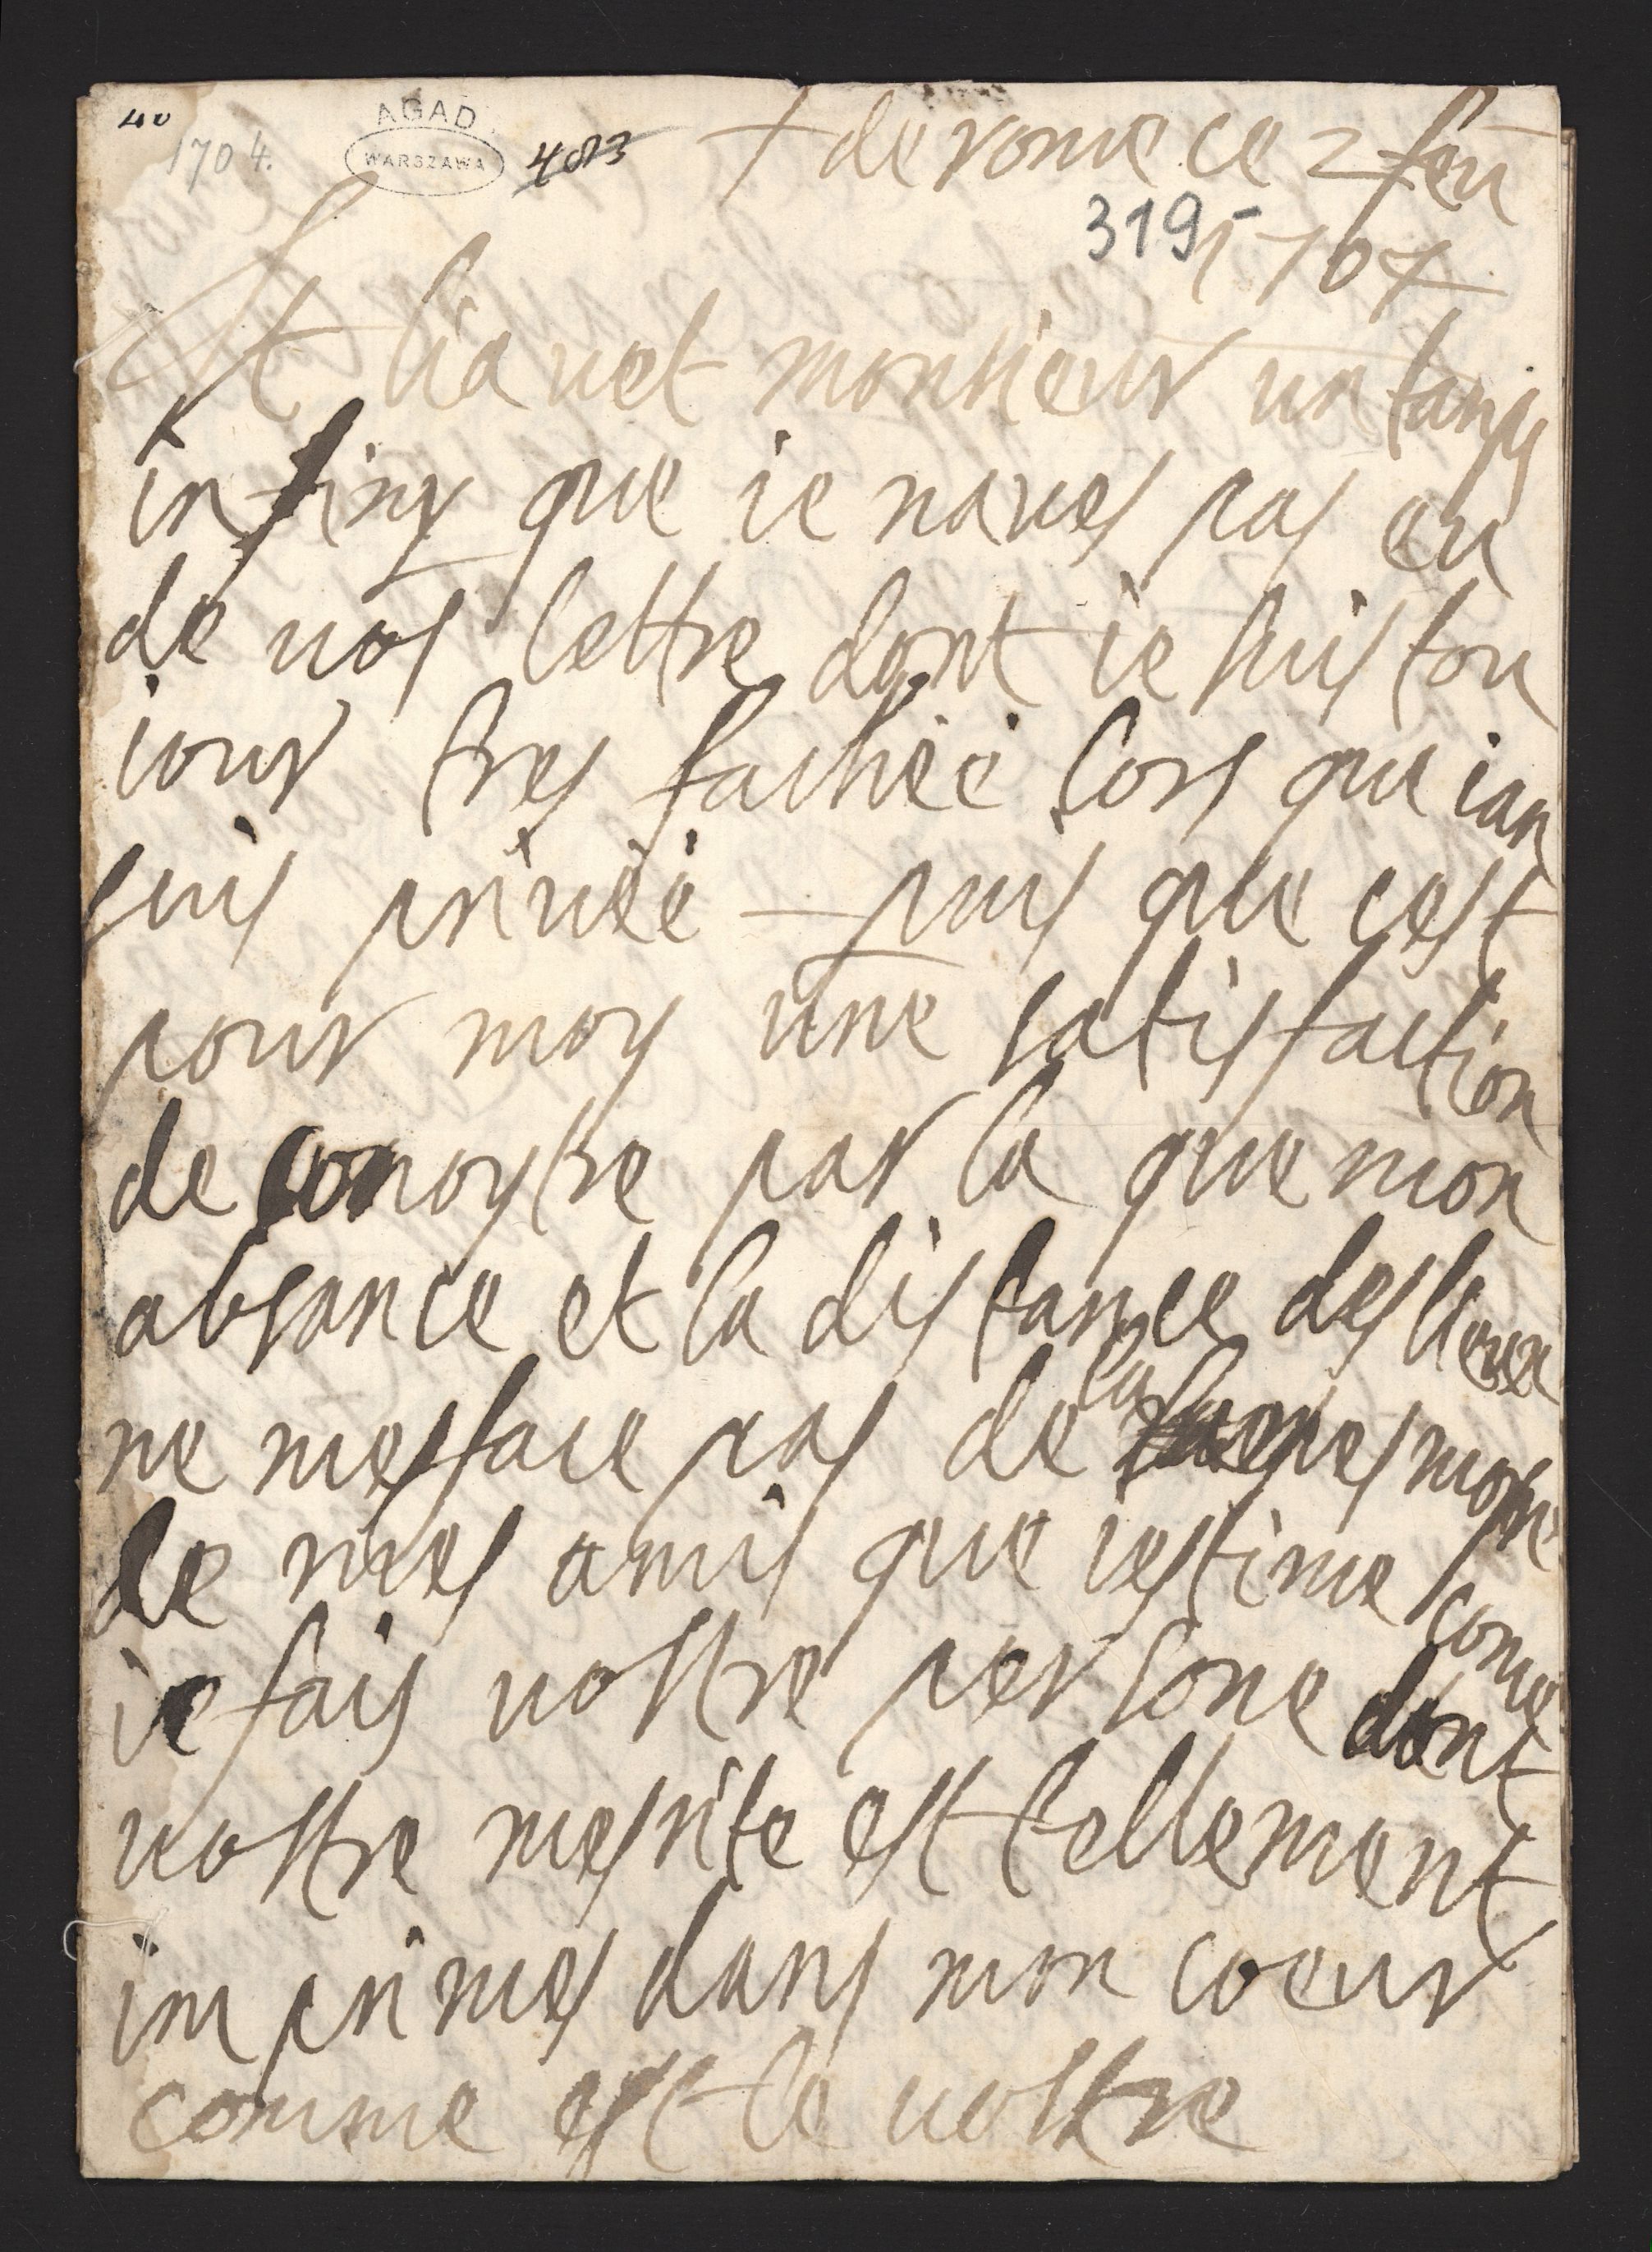 40
1704.
AGAD
WARSZAWA
483
+ de rome ce 2 feu
319
1704
Et liauet monsieur un tangs
infiny que ie naues pas eu
de vos lettre dont ie suis tou
iour tres fachéé lors que ian
suis privéé puis que cest
pour moy une satisfaction
de conoytre par la que mon
absance et la distance des lieux
ne mesface pas de la
de mes amis que iestime come
ie fais vostre persone dont
vostre mesrite est tellement
imprimes dans mon coeur
comme est le vostre